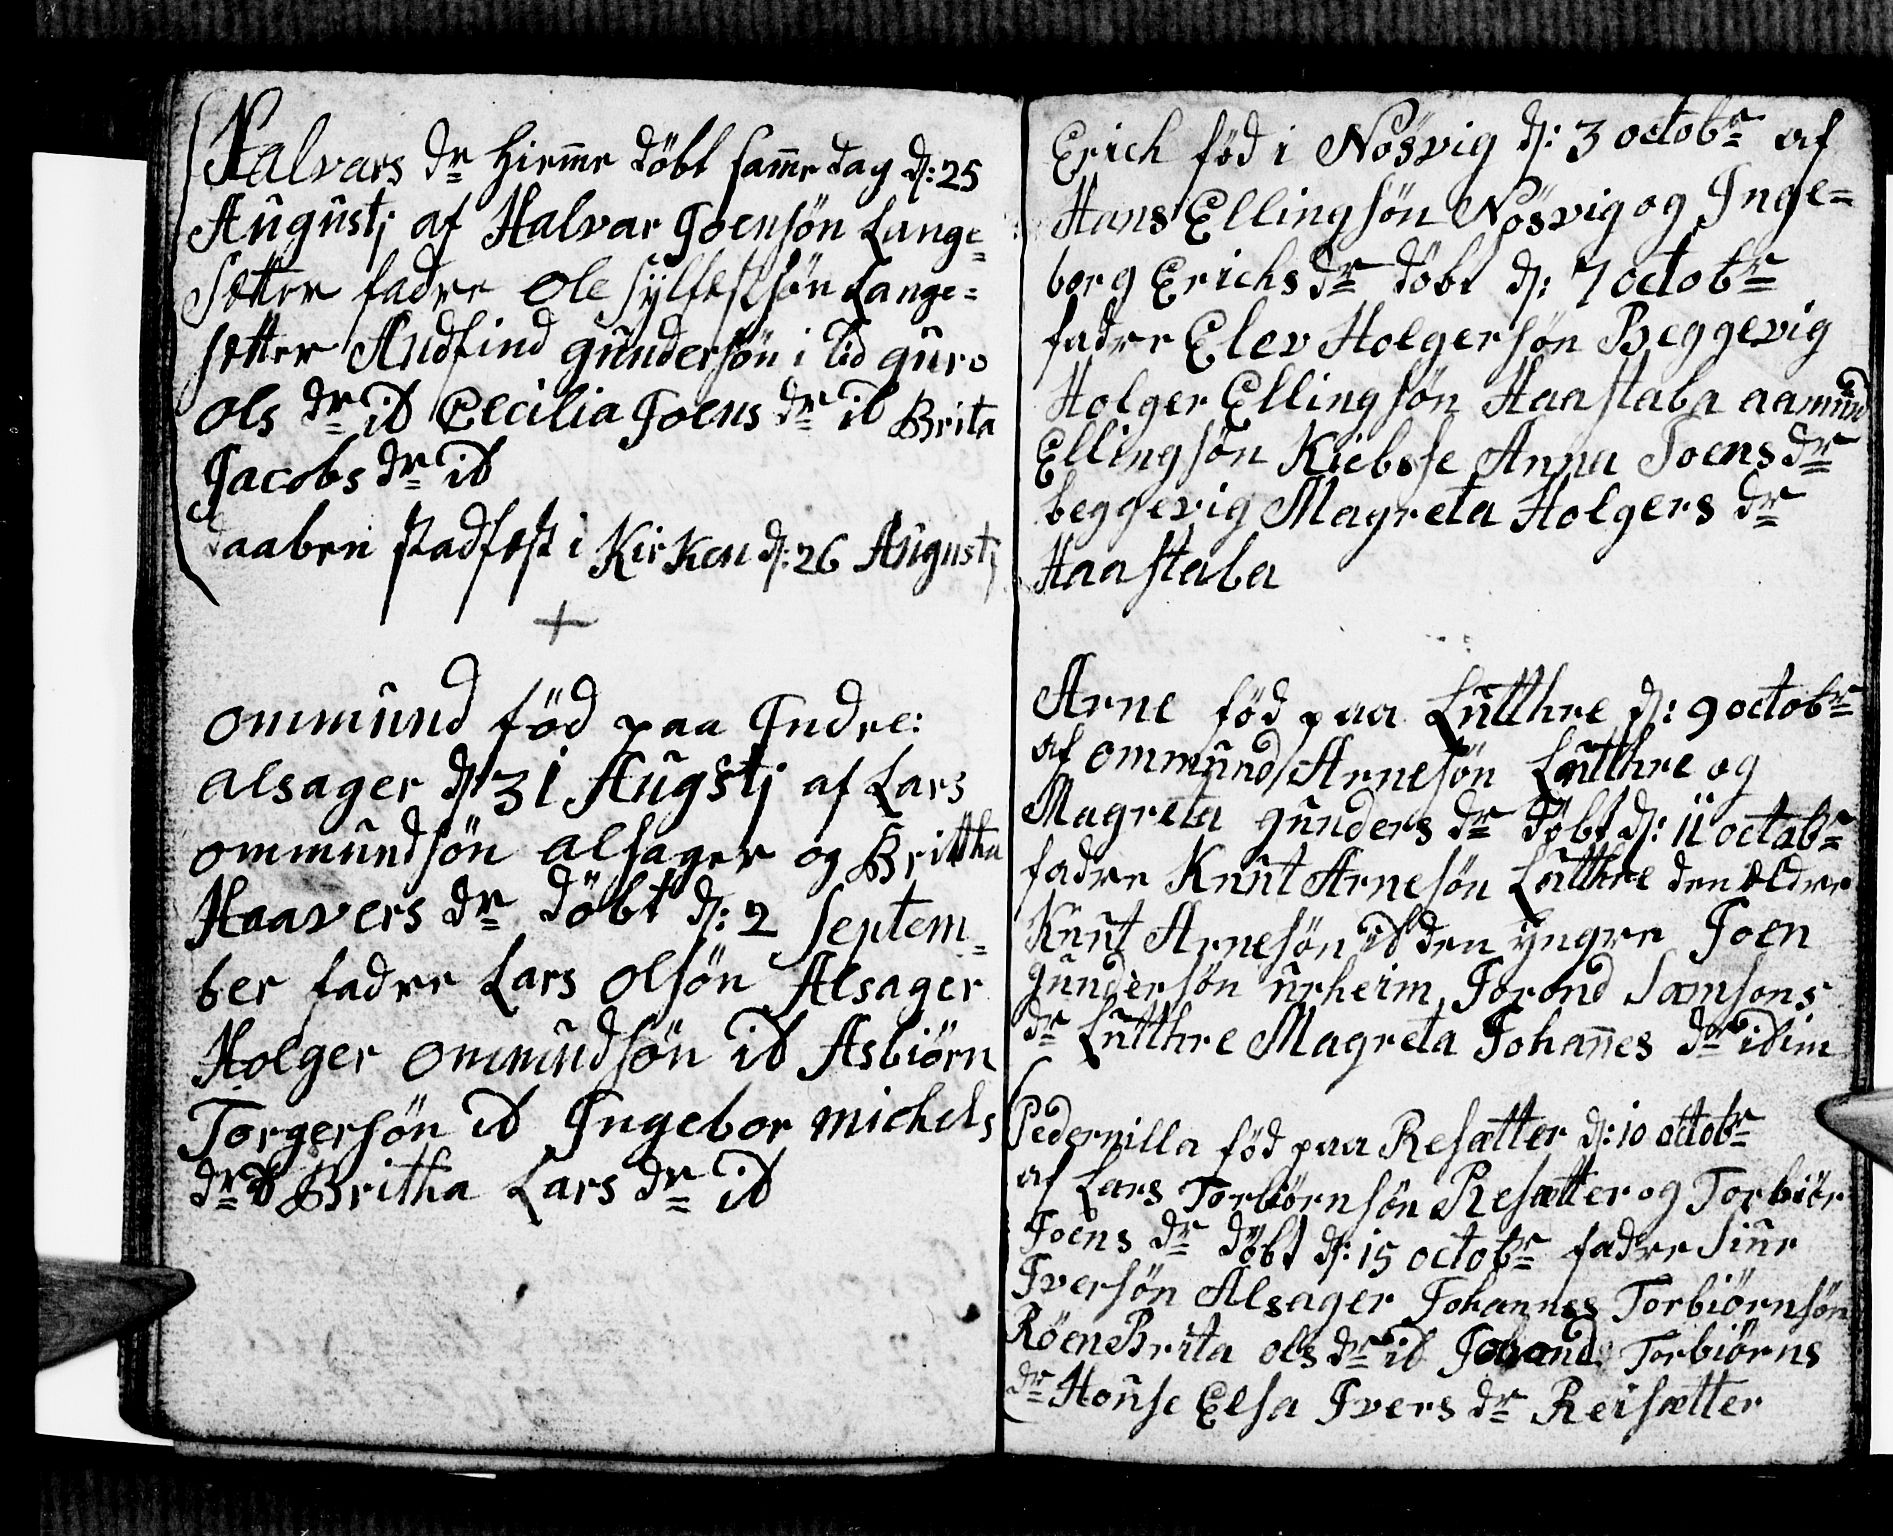 Halvars dr hiemme döbt samme dag d: 25
Augustj af Halvar Joensön Lange=
sætter fadre Ole Sylfestsön Lange=
sætter Andfind gundersön i Lid guro
Ols dr id Cecilia Joens dr id Brita
Jacobs dr id
daaben stadfest i Kirken d: 26 Augustj
+
ommund föd paa Indre:
alsager d: 31 Augstj af Lars
ommundsön alsager og Britha
Haavers dr döbt d: 2 Septem=
ber fadre Lars olsön Alsager
Holger ommundsön id Asbiörn
Torgersön id Ingebor michels
dr id Britha Lars dr id
Erich föd i Nösvig d: 3 octobr af
Hans Ellingsön Nösvig og Inge=
borg Erichs dr döbt d: 7 octobr
fadre Elev Holgersön Beggevig
Holger Ellingsön Haastaba aamund
Ellingsön Kiebsse Anna Joens dr
beggevig Magreta Holgers dr
Haastaba
Arne föd paa Lutthre d: 9 octobr
af ommund Arnesön Lutthre og
Magreta gunders dr döbt d: 11 octobr
fadre Knut Arnesön Lutthre den ældre
Knut Arnesön id den yngre Joen
gundersön urheim Jorond Samsons
dr Lutthre Magreta Johannes dr ibim
Pedernilla föd paa Resætter d: 10 octobr
af Lars Torbiörnsön Resætter og Torbiör
Joens dr döbt d: 15 octobr fadre Siur
Iversön Alsager Johannes Torbiörnsön
Röen Brita ols dr id Torbiörns
dr House Elsa Ivers dr Reisætter